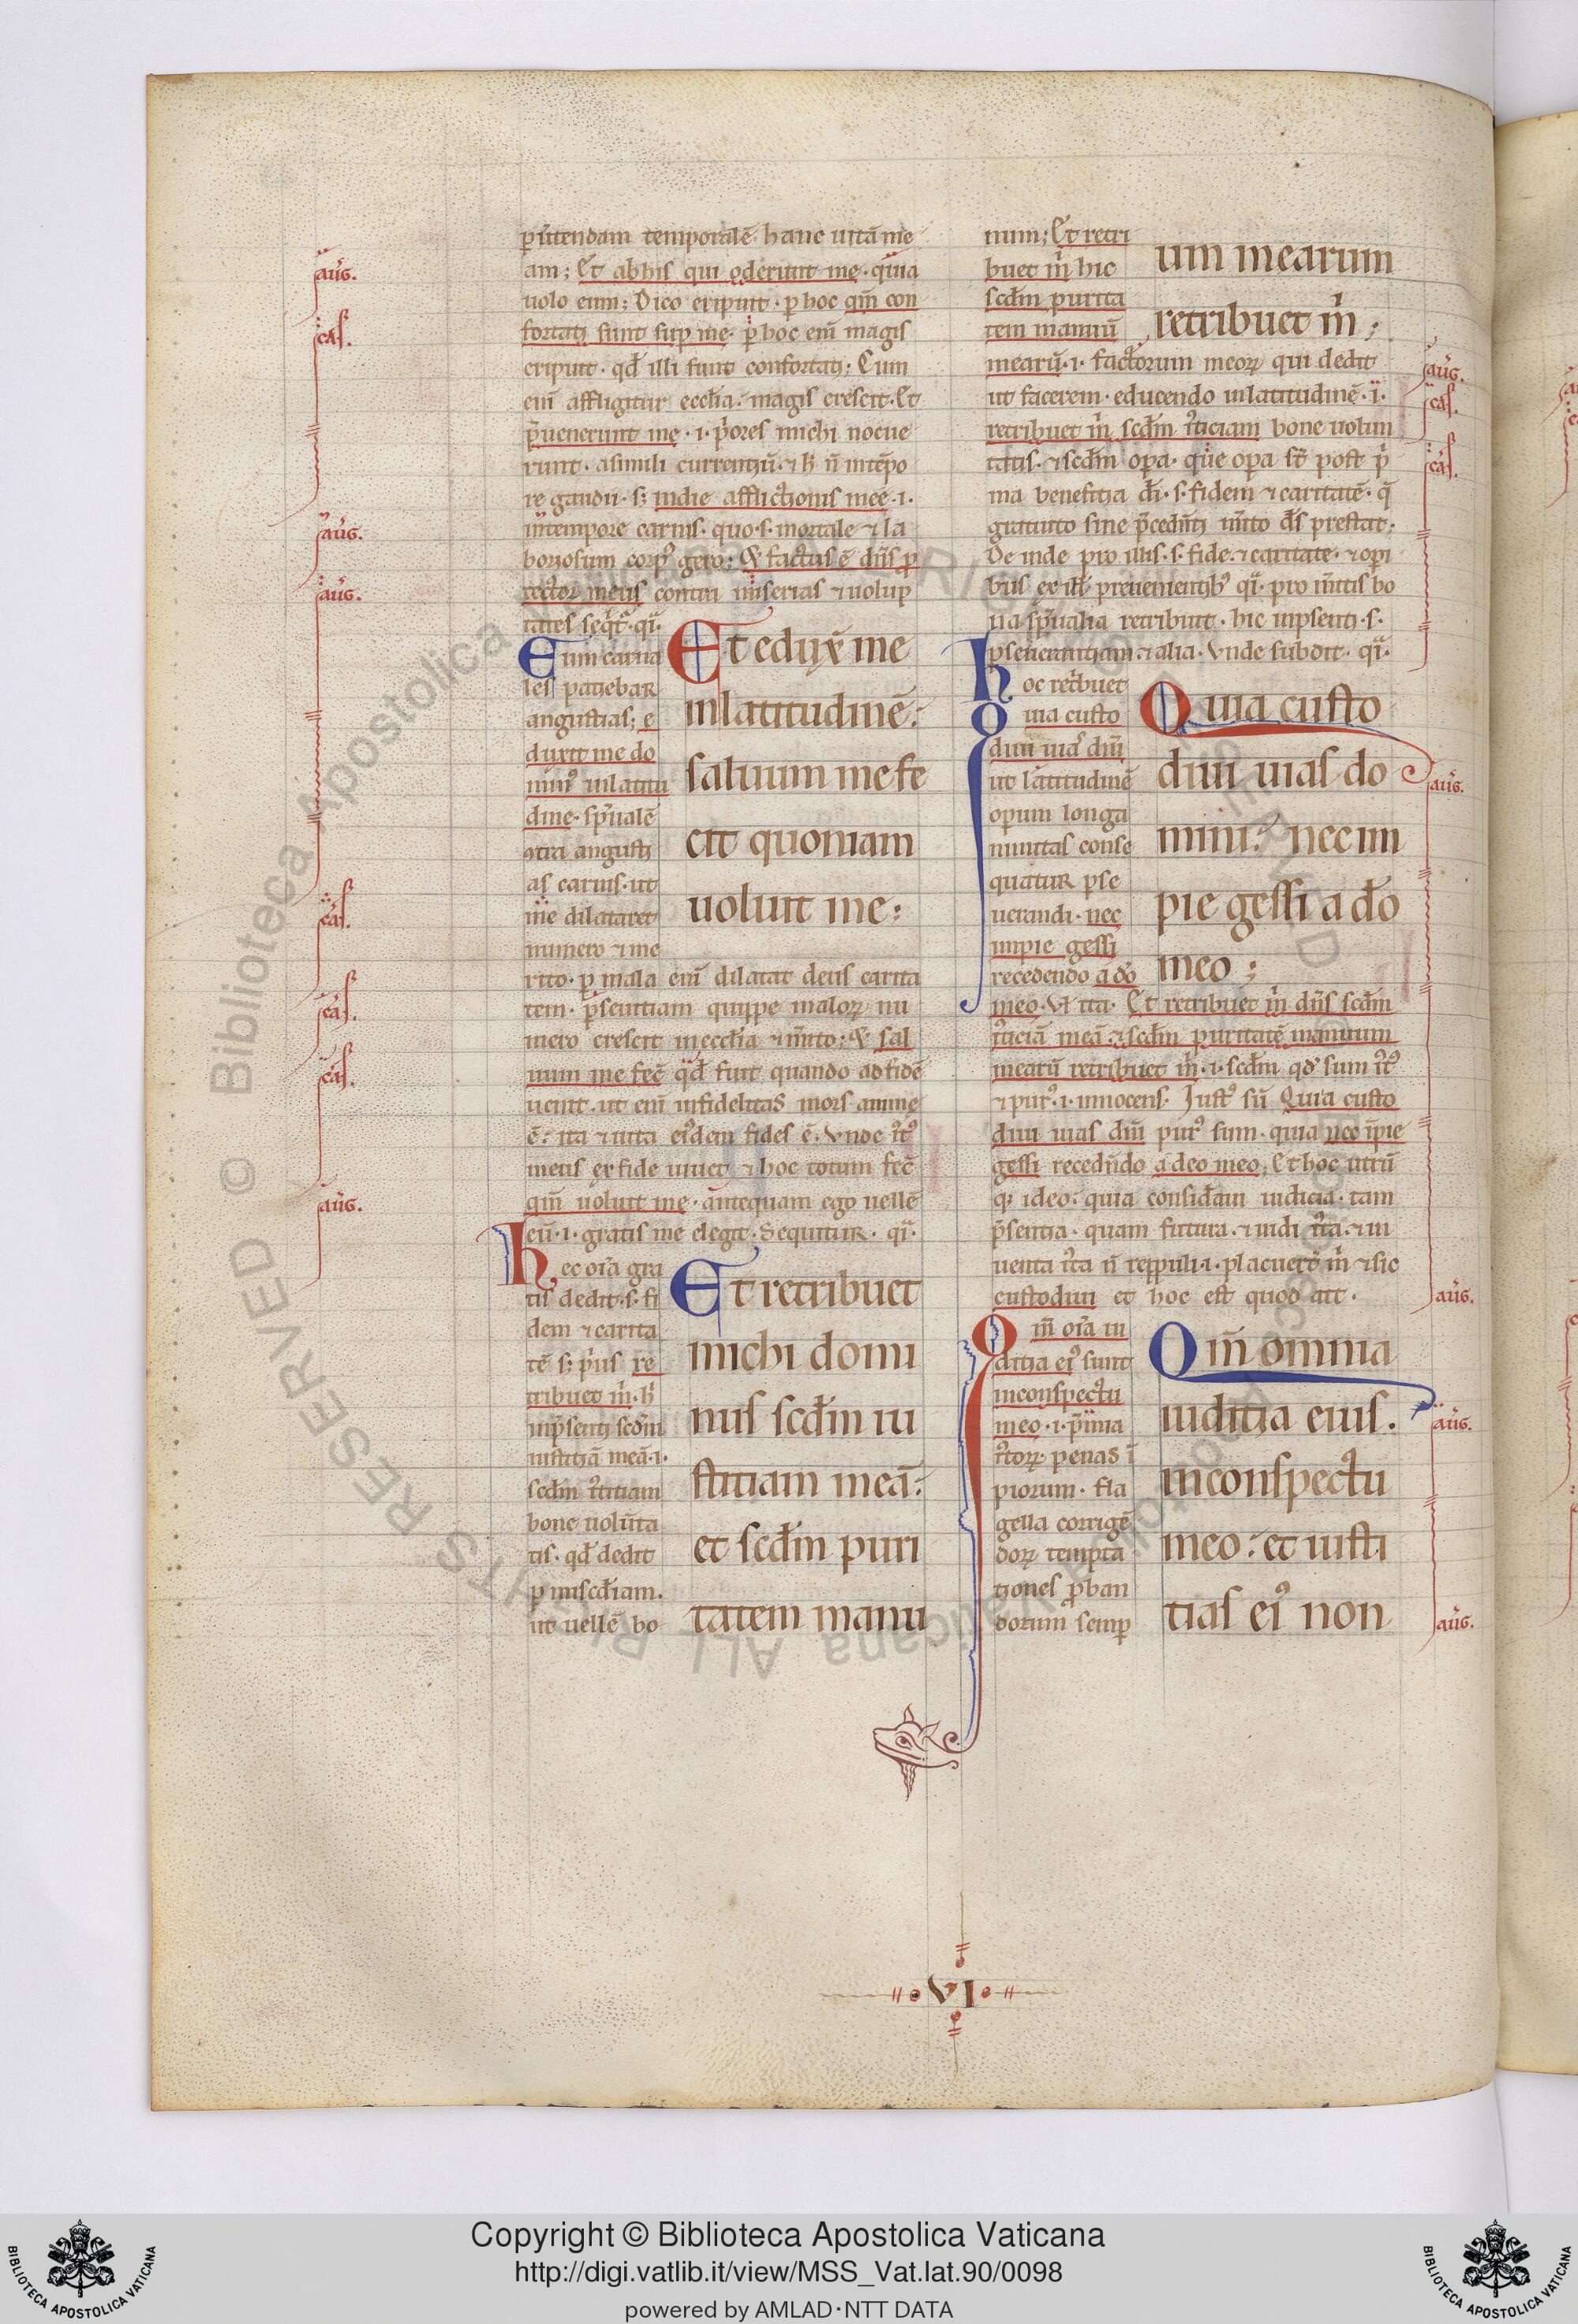 p̄mittendam temporalē hanc uitā me
am; Et ab his qui oderunt me · quia
uolo eum; Dico eripuit · p hoc qm̄ con
fortati sunt sup me · p hoc enī magis
eripuit · qđ illi sunt confortati; Cum
enī affligitur ecclīa: magis crescit · Et
p̄uenerunt me · i · p̄ores michi nocue
runt · a simili currentiū · ⁊ ħ ñ in tēpo
re gaudii · s; in die afflictionis meę · i ·
in tempore carnis · quo · s · mortale ⁊ la
boriosum corp⁹ gero; & factus ē dn̄s p
tector meus contra miserias ⁊ uolup
tates
Cum carna
les patiebar
angustias; e
duxit me do
min⁹ in latitu
dine · sp̄ualē
ɔtra angusti
as carnis · ut
me dilataret
numero ⁊ me
rito · p mala enī dilatat deus carita
tem · p̄sentiam quippe malorꝝ nu
mero crescit in ecclīa ⁊ m̄ito; & sal
uum me fec̄ qđ fuit quando ad fidē
uenit · ut enī infidelitas mors animę
ē: ita ⁊ uita ei⁹dem fides ē · Vnde ı̉t⁹
meus ex fide uiuet ⁊ hoc totum fec̄
qm̄ uoluit me · antequam ego uellē
eū · i · gratis me elegit · Sequitur ·
Et eduxi̅ me
in latitudinē:
saluum me fe
cit quoniam
uoluit me;
Hec oīa gra
tis dedit · s · fi
dem ⁊ carita
tē s; p̄us re
tribuet m̄ · ħ
in p̄senti scđm
iustitiā meā · i ·
scđm ı̉titiam
bone uolūta
tis · qđ dedit
p misc̄diam ·
ut uellē bo
Et retribuet
michi domi
nus scđm iu
stitiam meā:
et scđm puri
tatem manu
num; Et retri
buet m̄ hic
scđm purita
tem manuū
um mearum
retribuet m̄;
mearū · i · factorum meorꝝ qui dedit
ut facerem · educendo in latitudinē · i ·
retribuet m̄ scđm ı̉ticiam bone uolun
tatis · ⁊ scđm opa · que opa st̄ post p̄
ma benefitia đi · s · fidem ⁊ caritatē · q̄
gratuito sine p̄cedn̄ti m̄ito đs prestat ·
De inde pro illis · s · fide · ⁊ caritate · ⁊ opi
bus ex ill̄ preuenientib⁹ · pro m̄itis bo
na sp̄ualia retribuit · hic in p̄senti · s ·
pseuerantiam · ⁊ alia · Vnde subdit ·
Hoc ret̄buet
Quia custo
diui uia⁹ dn̄i
ut latitudinē
opum longa
nimitas conse
quatur pse
uerandi · nec
impie gessi
recedendo a do
Quia custo
diui uias do
mini: nec im
pie gessi a đo
meo;
meo · Vl̄ ita · Et retribuet m̄ dn̄s scđm
ı̉ticiā meā ⁊ scđm puritatē manuum
mearū retribuet m̄ · i · scđm qđ sum ı̉t⁹
⁊ pur⁹ · i · innocens · Just⁹ sū Quia custo
diui uias dn̄i pur⁹ sum · quia nec īpie
gessi recedn̄do a deo meo; Et hoc utrū
q; ideo: quia considaui iudicia · tam
p̄sentia · quam futura · ⁊ uidi ı̉ta · ⁊ in
uenta ı̉ta ñ reppuli · i · placuer̄t m̄ ⁊ sic
custodiui et hoc est quod ait ·
Qm̄ oīa iu
ditia ei⁹ sunt
in conspectu
meo · i · p̄mia
ı̉torꝝ penas ī
piorum · fla
gella corrigē
dorꝝ tempta
tiones p̄ban
dorum semp
Qm̄ omnia
iuditia eius ·
in conspectu
meo: et iusti
tias ei⁹ non
aug̃.
cas̃.
aug̃.
aug̃.
cas̃.
cas̃.
cas̃.
aug̃.
aug̃.
cas̃.
cas̃.
aug̃.
aug̃.
aug̃.
aug̃.
VI
© Biblioteca Apostolica Vaticana ALL RIGHTS RESERVED
Copyright © Biblioteca Apostolica Vaticana
http://digi.vatlib.it/view/MSS_Vat.lat.90/0098
powered by AMLAD·NTT DATA
BIBLIOTECA APOSTOLICA VATICANA
BIBLIOTECA APOSTOLICA VATICANA